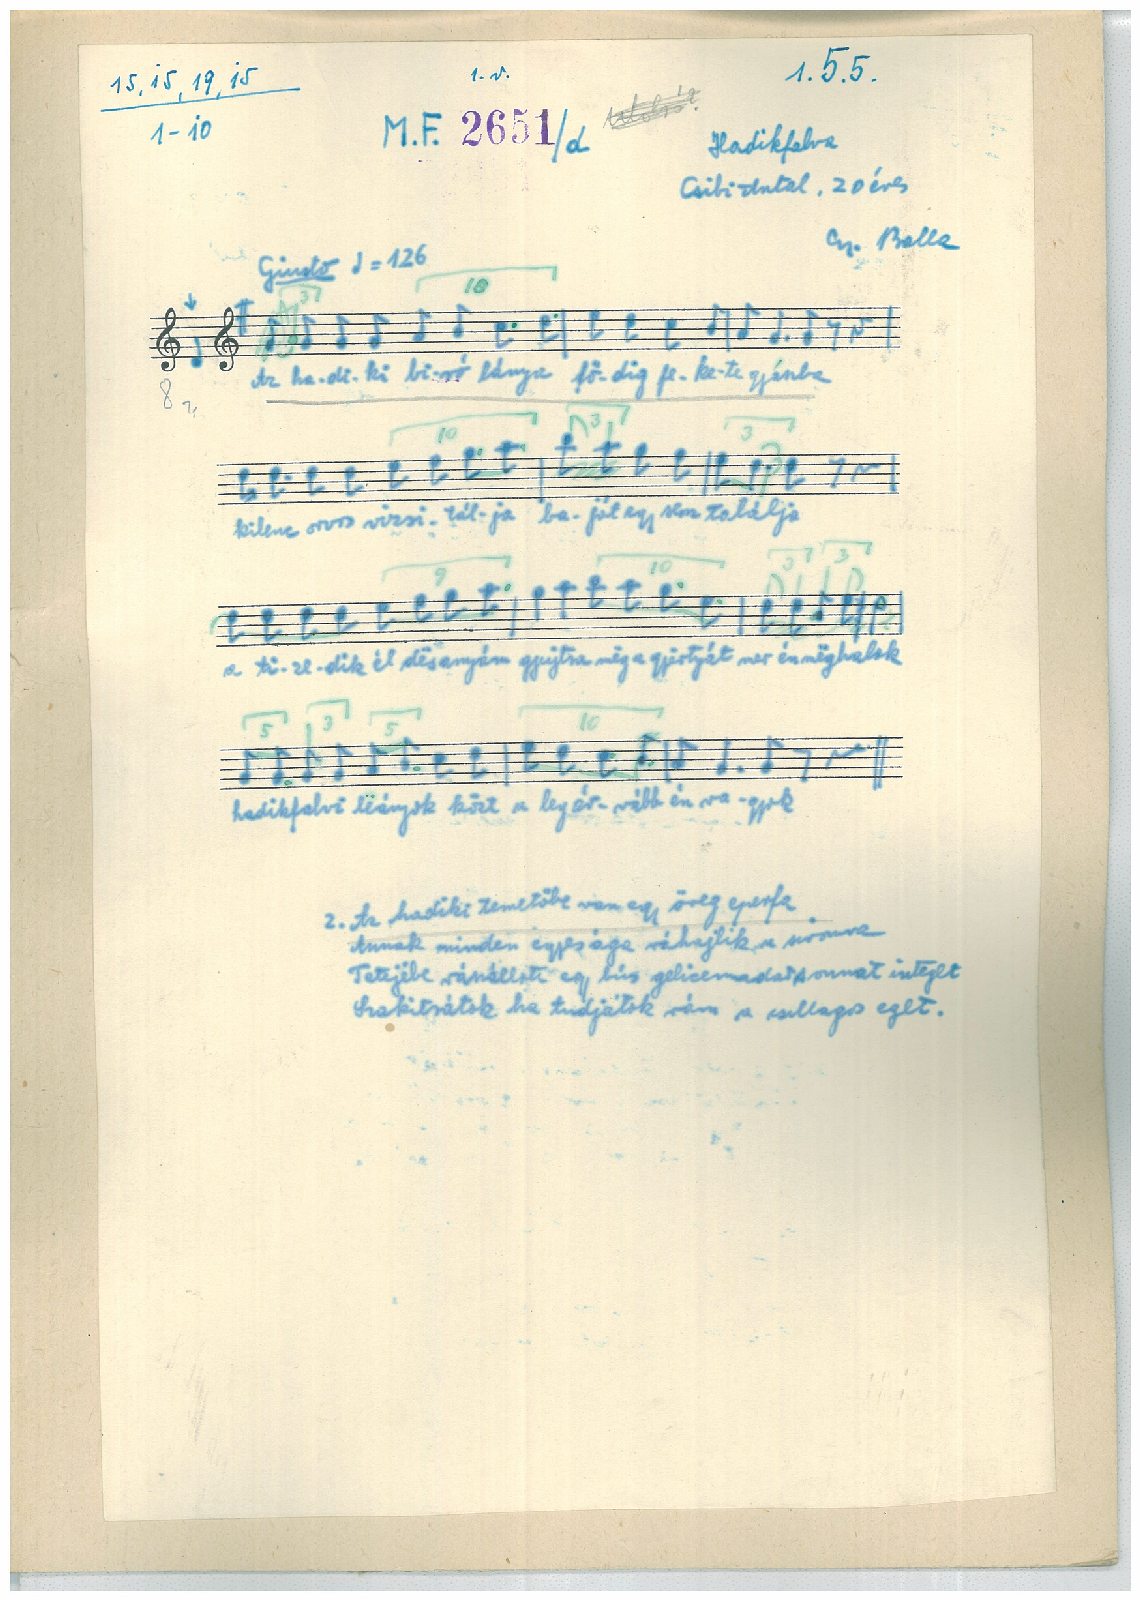 15, i5, 19, i5
1-v.
1.5.5.
1-i0
M.F. 2651/d
Hadikfalva
Csibi Antal, 20 éves
Gy. Balla
Giusto ♩=126
3 10
Az ha-di-ki bi-ró lánya fő-dig fe-ke-te gyászba
8
10 3 3
kilenc orvos vizsi-tál-ja ba-ját egy sem találja
9 10 3 3
a ti-ze-dik él désanyám gyujtsa még a gyertyát mer én méghalok
5 3 5 10
hadikfalvi léányok közt a legár-vább én va-gyok
2. Az hadiki temetőbe van egy öreg eperfa
Annak minden egyes ága ráhajlik a
Tetejébe rászállott egy bús gelicemadár s onnat integet
Szakítsátok ha tudjátok rám a csillagos eget.